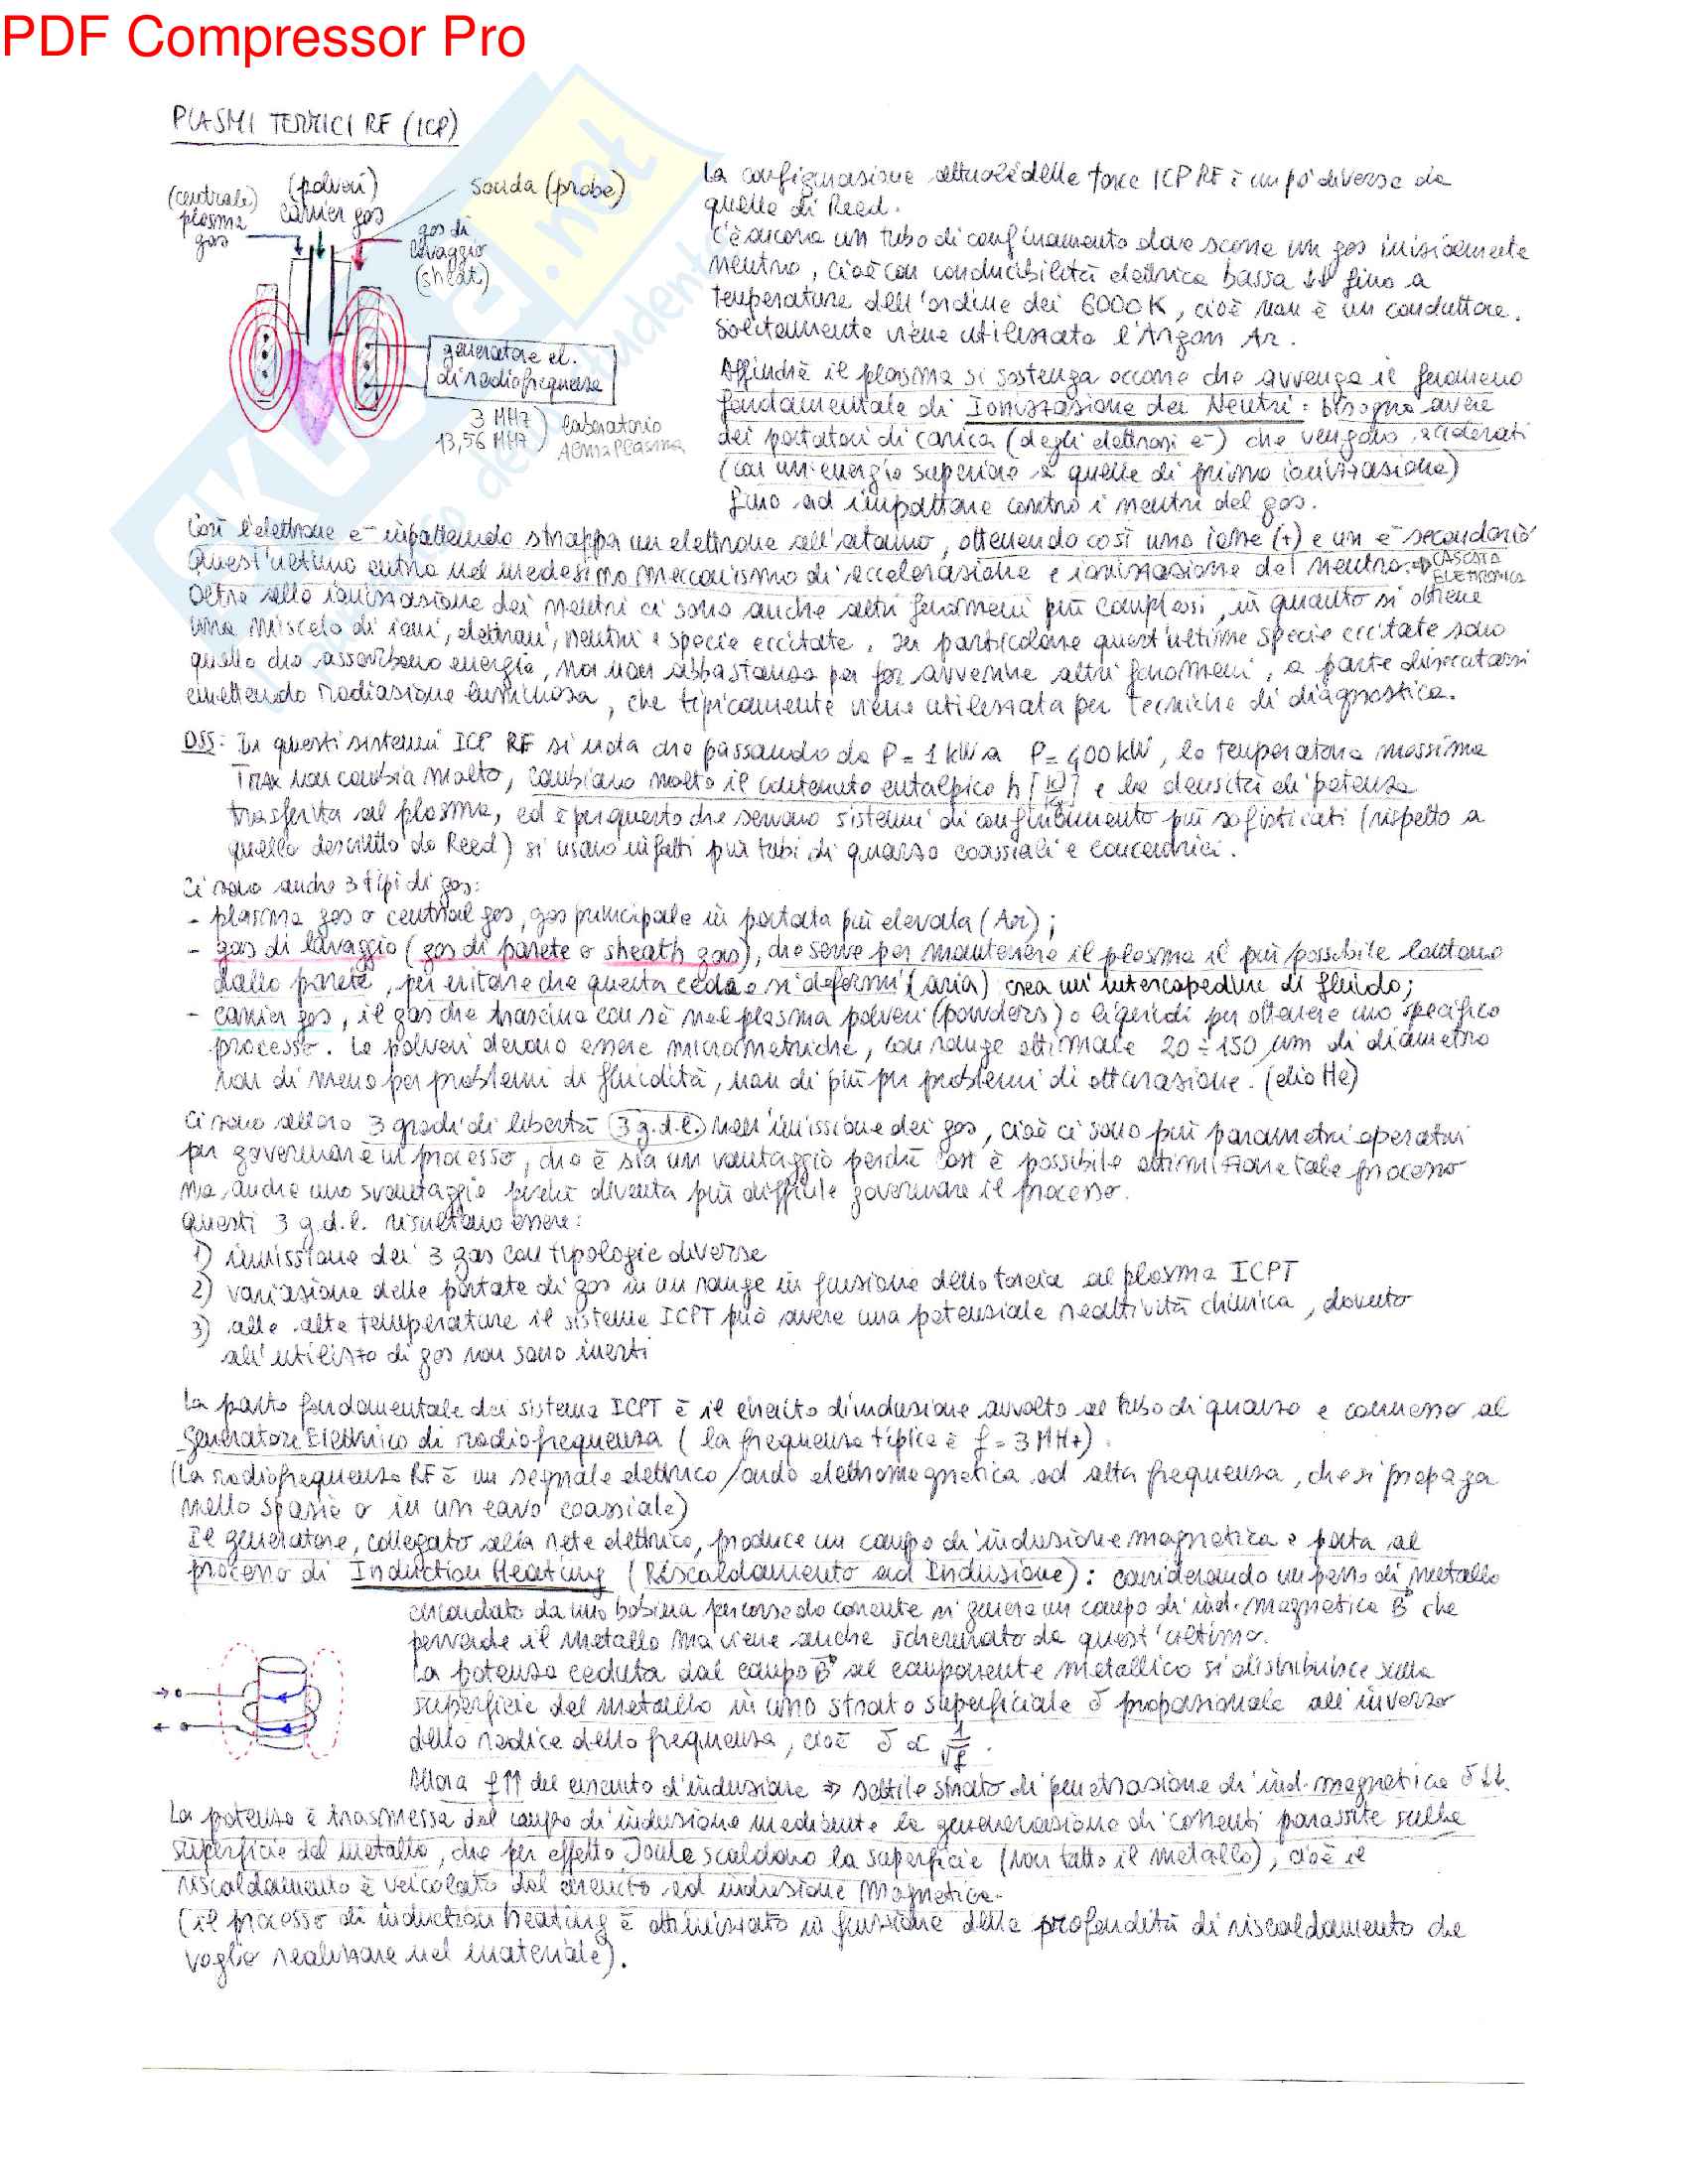 PDF Compressor Pro
PLASMI TERMICI RF (ICP)
(centrale)
plasma
gas
(polveri)
carrier gas
sonda (probe)
gas di
lavaggio
(sheat)
generatore el.
di radiofrequenza
3 MHz
13,56 MHz
laboratorio
ALMAPLASMA
La configurazione attuale delle torce ICP RF è un pò diversa da
quelle di Reed.
C'è ancora un tubo di confinamento dove scorre un gas inizialmente
neutro, cioè con conducibilità elettrica bassa ↓↓ fino a
temperature dell'ordine dei 6000 K, cioè non è un conduttore.
Solitamente viene utilizzato l'Argon Ar.
Affinchè il plasma si sostenga occorre che avvenga il fenomeno
fondamentale di Ionizzazione dei Neutri: bisogna avere
dei portatori di carica (degli elettroni e⁻) che vengono accelerati
(con un'energia superiore a quella di prima ionizzazione)
fino ad impattare contro i neutri del gas.
Così l'elettrone e⁻ impattando strappa un elettrone all'atomo, ottenendo così uno ione (+) e un e⁻ secondario
Quest'ultimo entra nel medesimo meccanismo di accelerazione e ionizzazione del neutro. ⇒ CASCATA
ELETTRONICA
Oltre alla ionizzazione dei neutri ci sono anche altri fenomeni più complessi, in quanto si ottiene
una miscela di ioni, elettroni, neutri e specie eccitate. In particolare quest'ultime specie eccitate sono
quelle che assorbono energia, ma non abbastanza per far avvenire altri fenomeni, a parte diseccitarsi
emettendo radiazione luminosa, che tipicamente viene utilizzata per tecniche di diagnostica.
OSS: In questi sistemi ICP RF si nota che passando da P = 1 kW a P = 400 kW, la temperatura massima
TMAX non cambia molto, cambiano molto il contenuto entalpico h [kJ/kg] e la densità di potenza
trasferita al plasma, ed è per questo che servono sistemi di confinamento più sofisticati (rispetto a
quello descritto da Reed) si usano infatti più tubi di quarzo coassiali e concentrici.
Ci sono anche 3 tipi di gas:
- plasma gas o central gas, gas principale in portata più elevata (Ar);
- gas di lavaggio (gas di parete o sheath gas), che serve per mantenere il plasma il più possibile lontano
dalla parete, per evitare che questa ceda e si deformi (aria) crea un'intercapedine di fluido;
- carrier gas, il gas che trascina con sè nel plasma polveri (powders) o liquidi per ottenere uno specifico
processo. Le polveri devono essere micrometriche, con range ottimale 20 ÷ 150 μm di diametro
non di meno per problemi di fluidità, non di più per problemi di otturazione. (elio He)
Ci sono allora 3 gradi di libertà (3 g.d.l.) nell'immissione dei gas, cioè ci sono più parametri operativi
per governare un processo, che è sia un vantaggio perchè così è possibile ottimizzare tale processo
ma anche uno svantaggio perchè diventa più difficile governare il processo.
Questi 3 g.d.l. risultano essere:
1) immissione dei 3 gas con tipologie diverse
2) variazione delle portate di gas in un range in funzione della torcia al plasma ICPT
3) alle alte temperature il sistema ICPT può avere una potenziale reattività chimica, dovuto
all'utilizzo di gas non sono inerti
La parte fondamentale del sistema ICPT è il circuito di induzione avvolto al tubo di quarzo e connesso al
Generatore Elettrico di radiofrequenza (la frequenza tipica è f = 3 MHz).
(La radiofrequenza RF è un segnale elettrico/onda elettromagnetica ad alta frequenza, che si propaga
nello spazio o in un cavo coassiale)
Il generatore, collegato alla rete elettrica, produce un campo di induzione magnetica e porta al
processo di Induction Heating (Riscaldamento ad Induzione): considerando un pezzo di metallo
circondato da una bobina percorsa da corrente si genera un campo di ind. magnetica B⃗ che
pervade il metallo ma viene anche schermato da quest'ultimo.
La potenza ceduta dal campo B⃗ al componente metallico si distribuisce sulla
superficie del metallo in uno strato superficiale δ proporzionale all'inverso
della radice della frequenza, cioè δ ∝ 1/√f.
Allora f↑↑ del circuito d'induzione ⇒ sottile strato di penetrazione di ind. magnetica δ↓↓.
La potenza è trasmessa dal campo di induzione mediante la generazione di correnti parassite sulla
superficie del metallo, che per effetto Joule scaldano la superficie (non tutto il metallo), cioè il
riscaldamento è veicolato dal circuito ad induzione magnetica.
(il processo di induction heating è ottimizzato in funzione della profondità di riscaldamento che
voglio realizzare nel materiale).